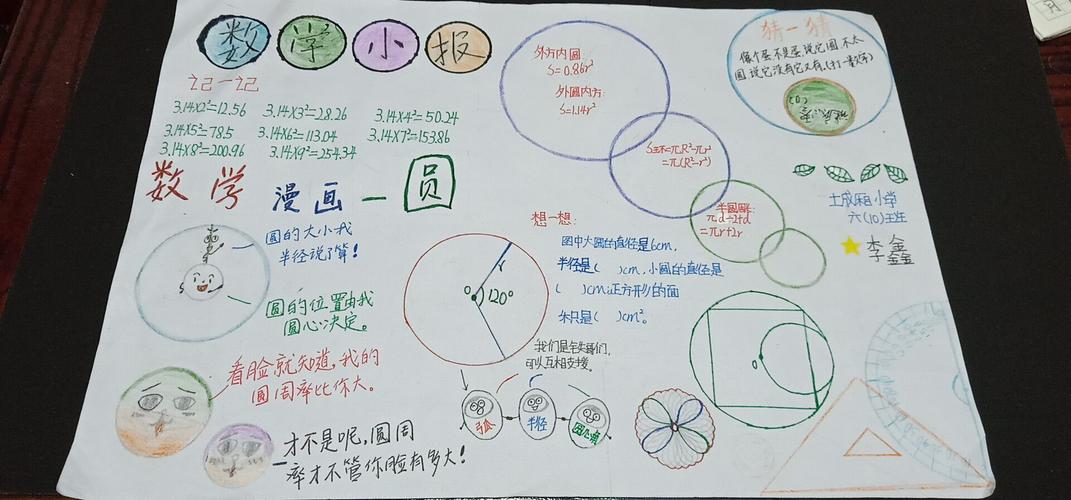 数学小报
记一记
3.14×2²=12.56
3.14×3²=28.26
3.14×4²=50.24
3.14×5²=78.5
3.14×6²=113.04
3.14×7²=153.86
3.14×8²=200.96
3.14×9²=254.34
数学漫画—圆
圆的大小我
半径说了算!
圆的位置由我
圆心决定。
看脸就知道,我的
圆周率比你大。
才不是呢,圆周
率才不管你脸有多大!
外方内圆:
S=0.86r²
外圆内方:
S=1.14r²
S环=πR²-πr²
=π(R²-r²)
半圆周长:
πd÷2+d
=πr+2r
猜一猜
像个蛋不是蛋,说它圆,不太
圆,说它没有它又有,(打一数字)
想一想:
图中大圆的直径是6cm,
半径是( )cm,小圆的直径是
( )cm,正方形的面
积是( )cm²。
r
O
120°
我们是铁哥们,
可以互相支援。
弧
半径
圆心角
O
土成厢小学
六(10)班
李鑫鑫